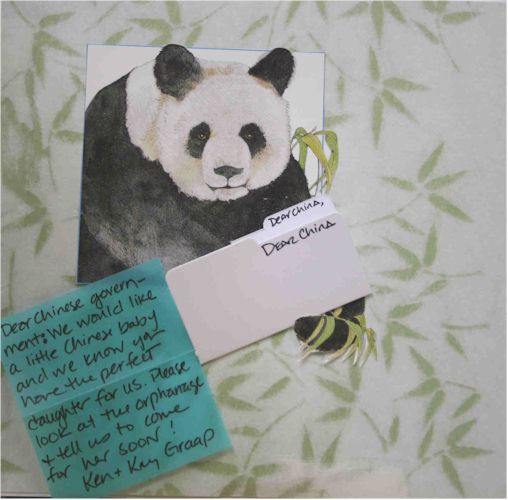 Dear China,
Dear China
Dear Chinese govern-
ment: We would like
a little Chinese baby
and we know ya'
have the perfect
daughter for us. Please
look at the orphanage
+ tell us to come
for her soon!
Ken + Kay Graap